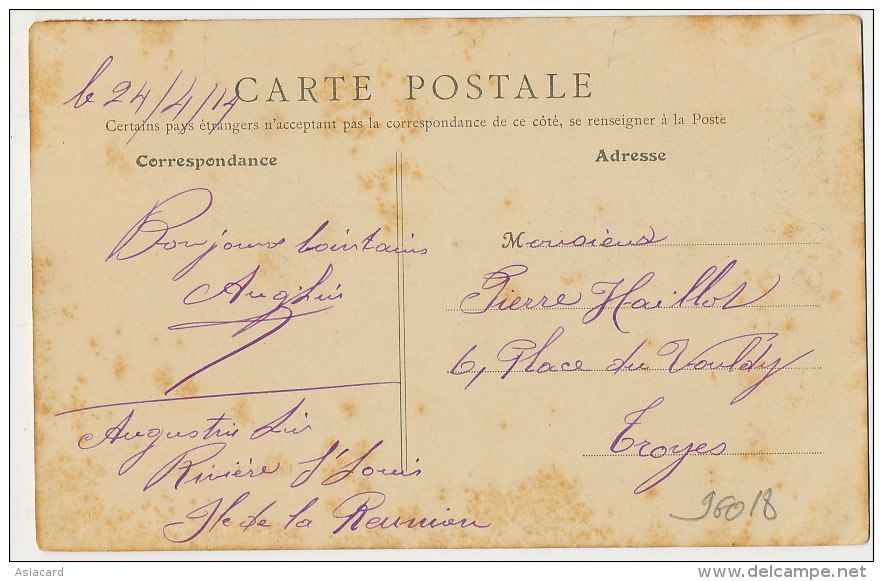 le 24/4/14
CARTE POSTALE
Certains pays étrangers n'acceptant pas la correspondance de ce côté, se renseigner à la Poste
Correspondance
Bonjour lointains
Augustin
Rivière St Louis
Ile de la Reunion
Adresse
Monsieur
Pierre Haillot
6, Place du Vouldy
Troyes
96018
Asiacard
delcampe.net